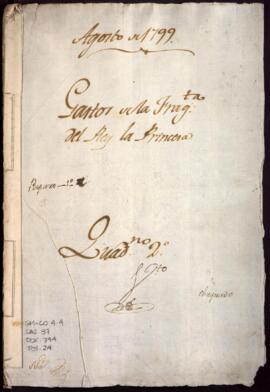 Agosto de 1799
Gastos de la Frag.ta
del Rey la Princesa
Reparo 1º
Quad.no 2.º
chequeado
GM-CO 4-4
CAJ. 37
DOC. 744
FOL. 24